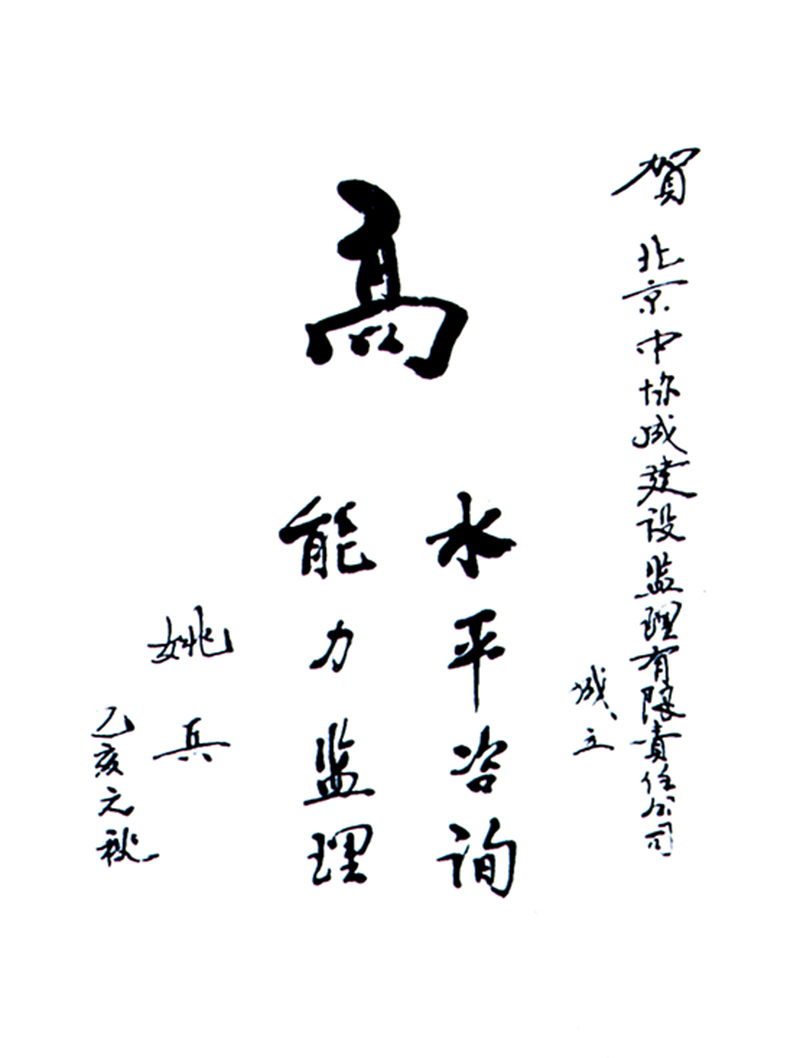 贺北京中协成建设监理有限责任公司
成立
高
水平咨询
能力监理
姚兵
乙亥元秋